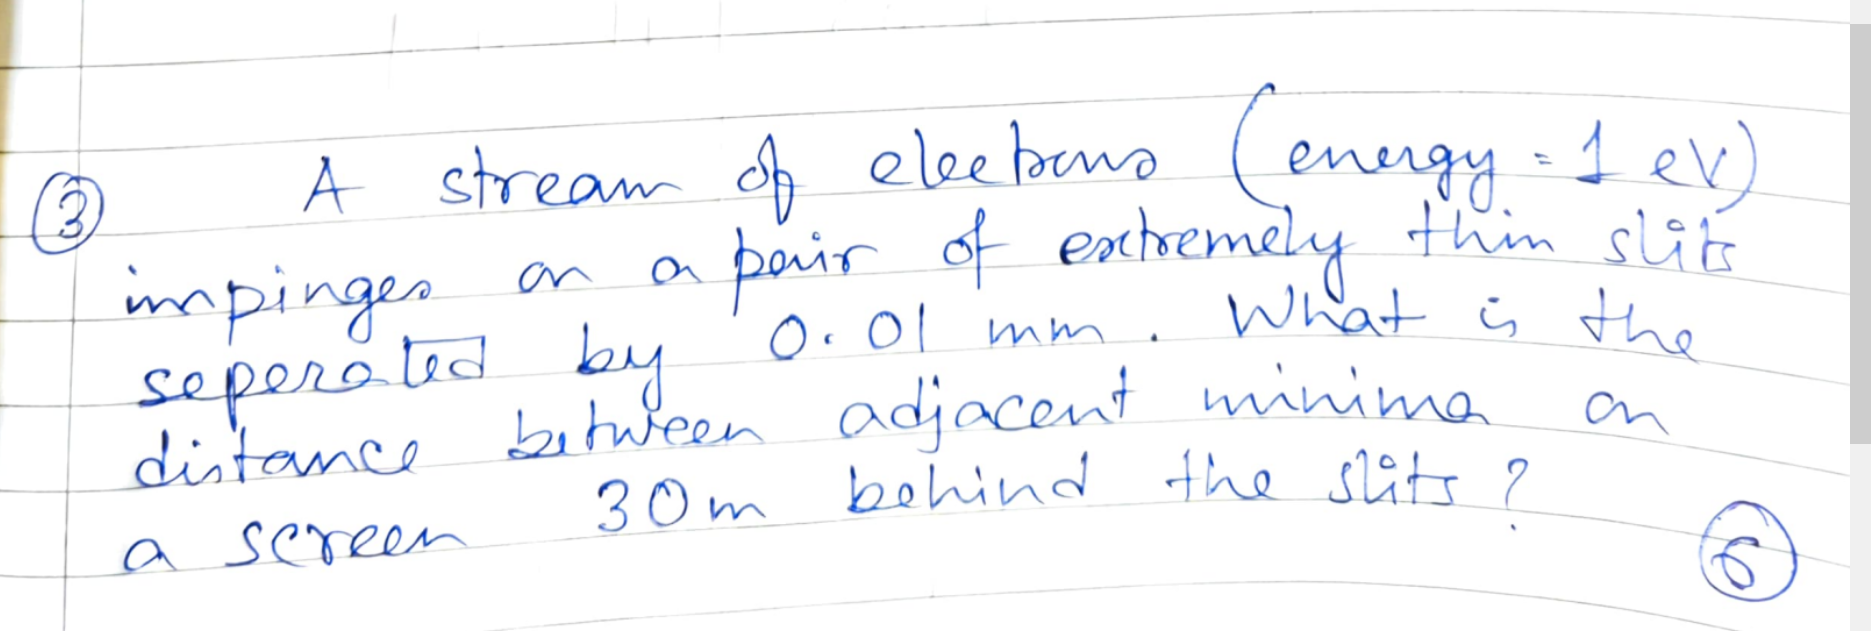 ③ A stream of electrons (energy = 1 eV)
impinges on a pair of extremely thin slits
seperated by 0.01 mm. What is the
distance between adjacent minima on
a screen 30m behind the slits?